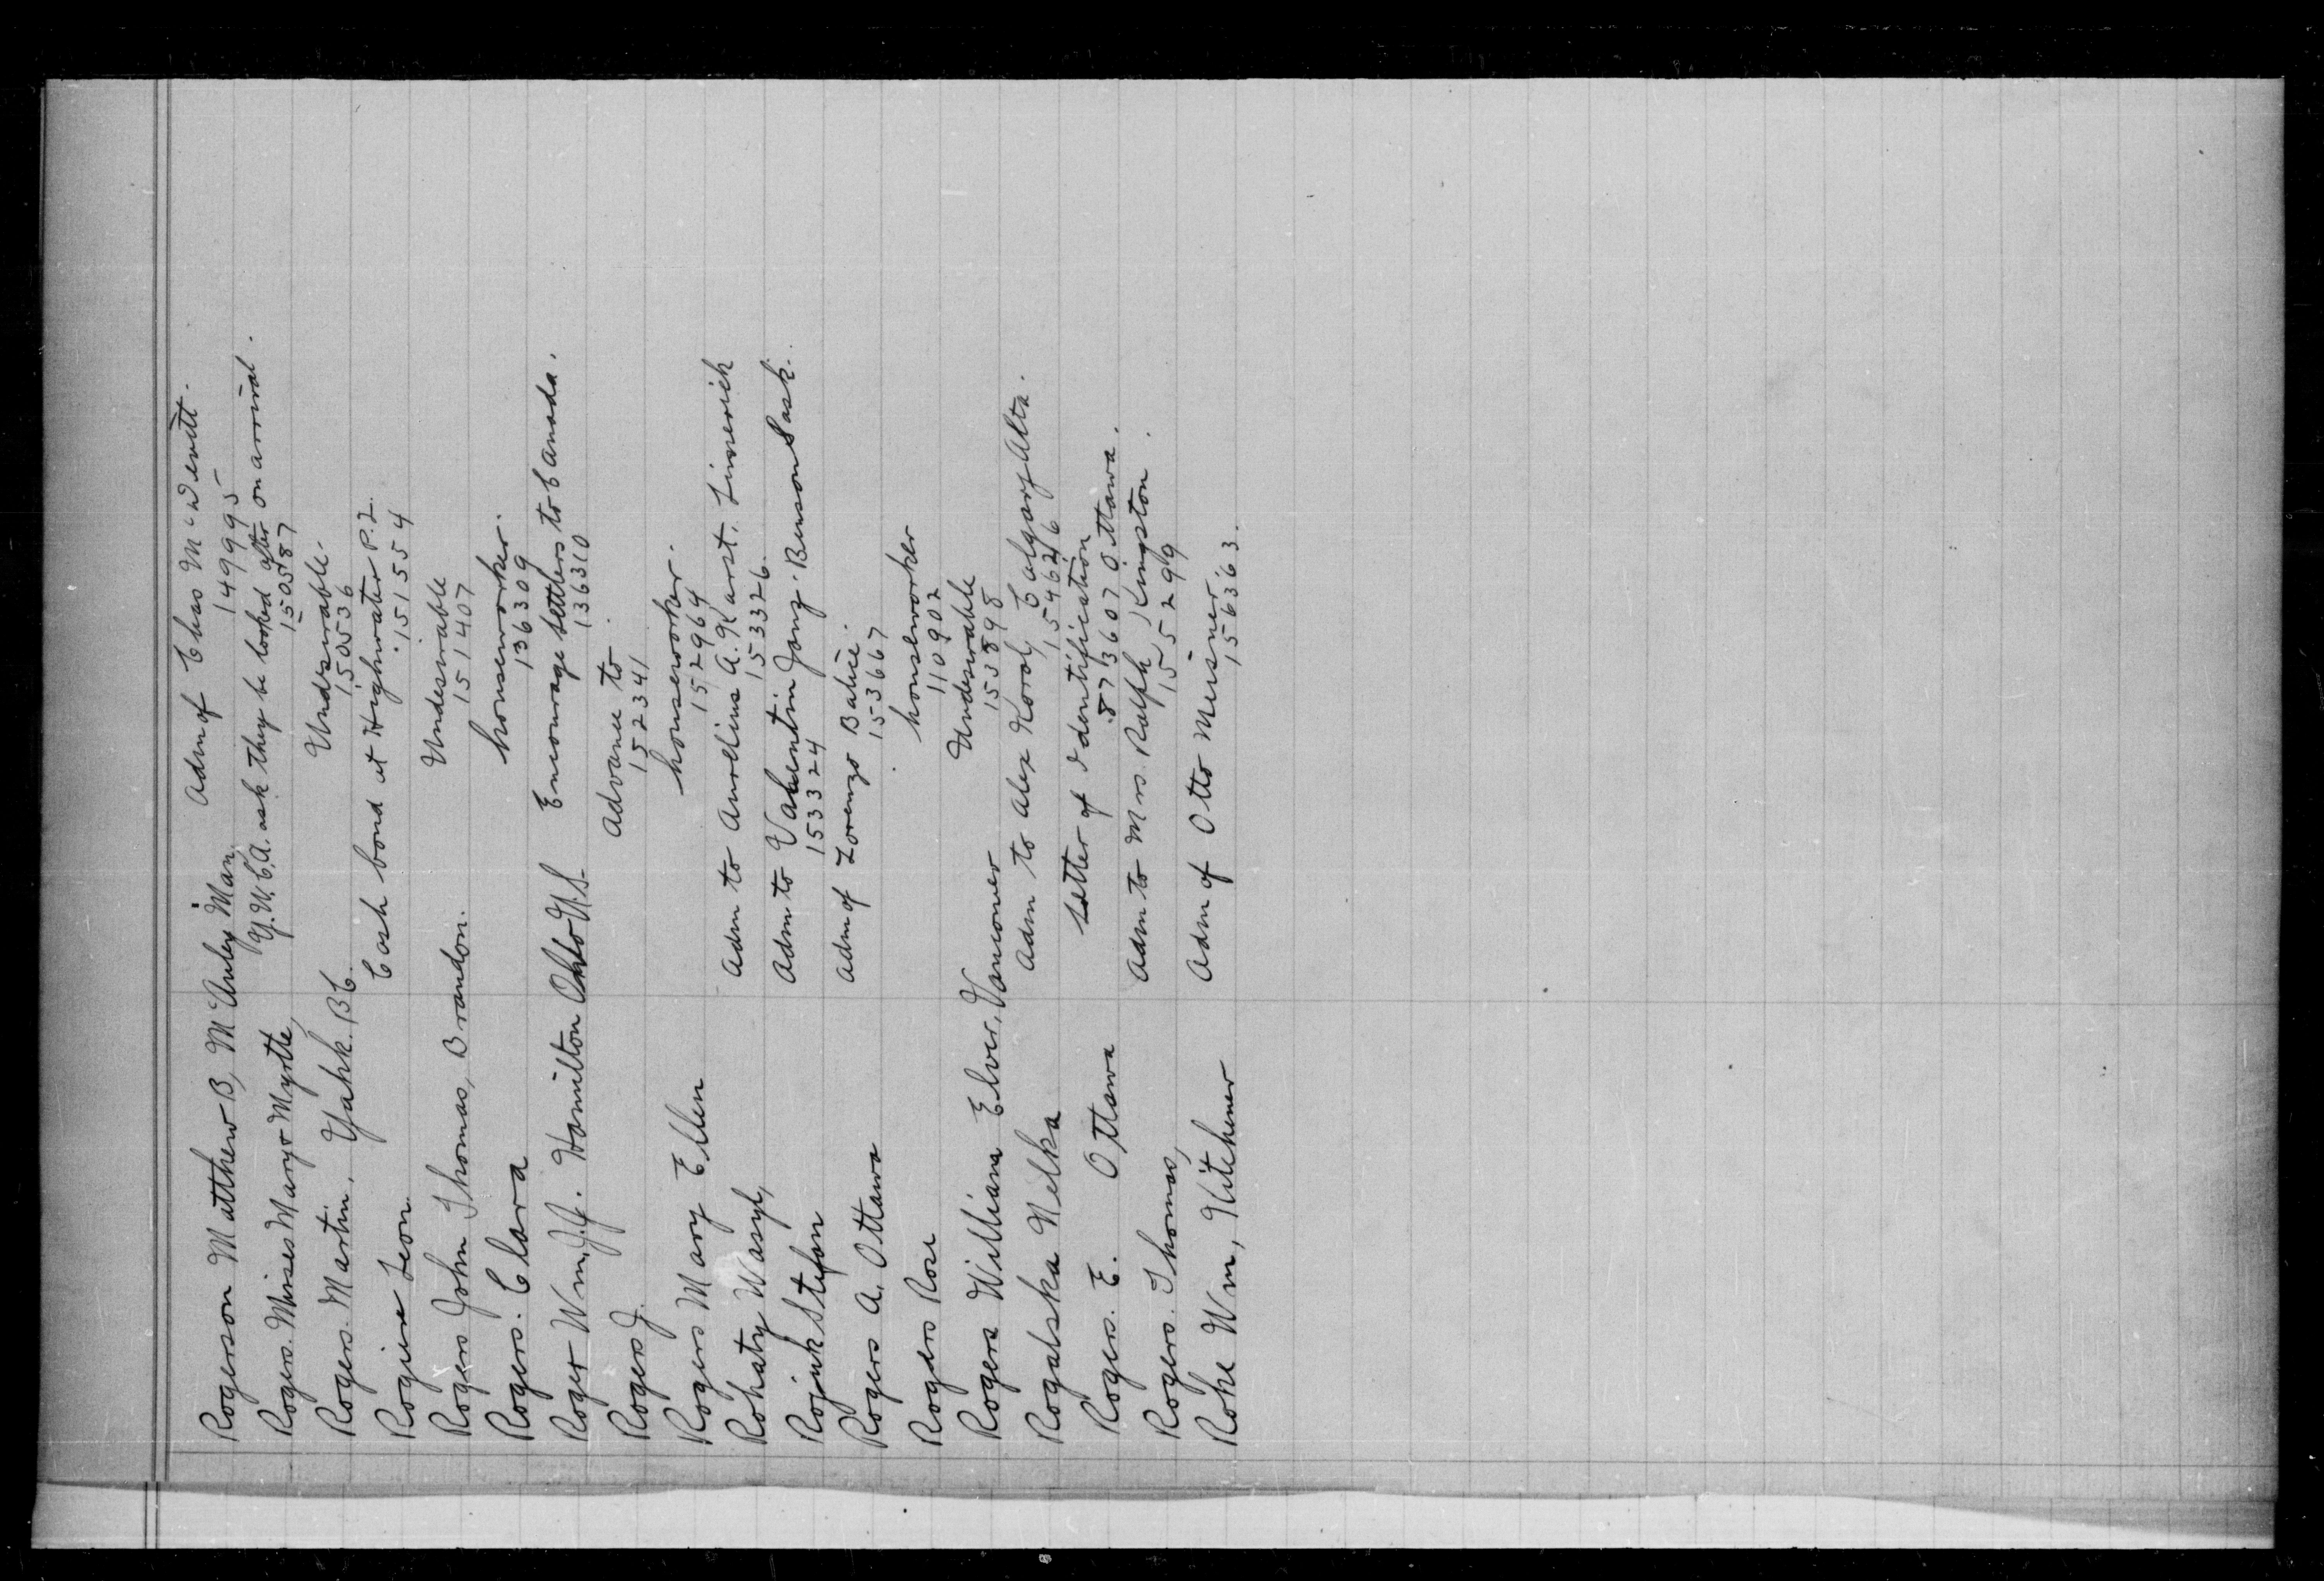 Rogerson Matthew B, McAuley Man. Adm of Chas McDevitt.
149995
Rogers. Misses Mary & Myrtle, Y.W.C.A. ask they be looked after on arrival.
150587
Rogers. Martin, Yahk. BC. Undesirable.
150536
Leon Cash bond at Highwater P.2.
151554
Rogers John Thomas, Brandon. Undesirable
151407
Rogers. Clara houseworker.
136309
Roger Wm. J.J. Hamilton Ohio U.S. Encourage settlers to Canada.
136310
Rogers J. Advance to
152341
Rogers Mary Ellen houseworker.
152964
Rohaty Wasyl, Adm to Aurelius A. Karst. Limerick
153326.
Rojuk Stefan Adm to Valentin Janz. Benson Sask.
153324
Rogers A. Ottawa Adm of Lorenzo
153667
Rogers Rose houseworker
110902
Rogers William Elver, Vancouver Undesirable
153898
Rogalska Nelka Adm to Alex Korol, Calgary Alta.
154626
Rogers. E. Ottawa Letter of Identification
873607 Ottawa.
Rogers. Thomas, Adm to Mrs. Ralph Kingston.
155299
Rohe Wm, Kitchener Adm of Otto Meisner.
156363.